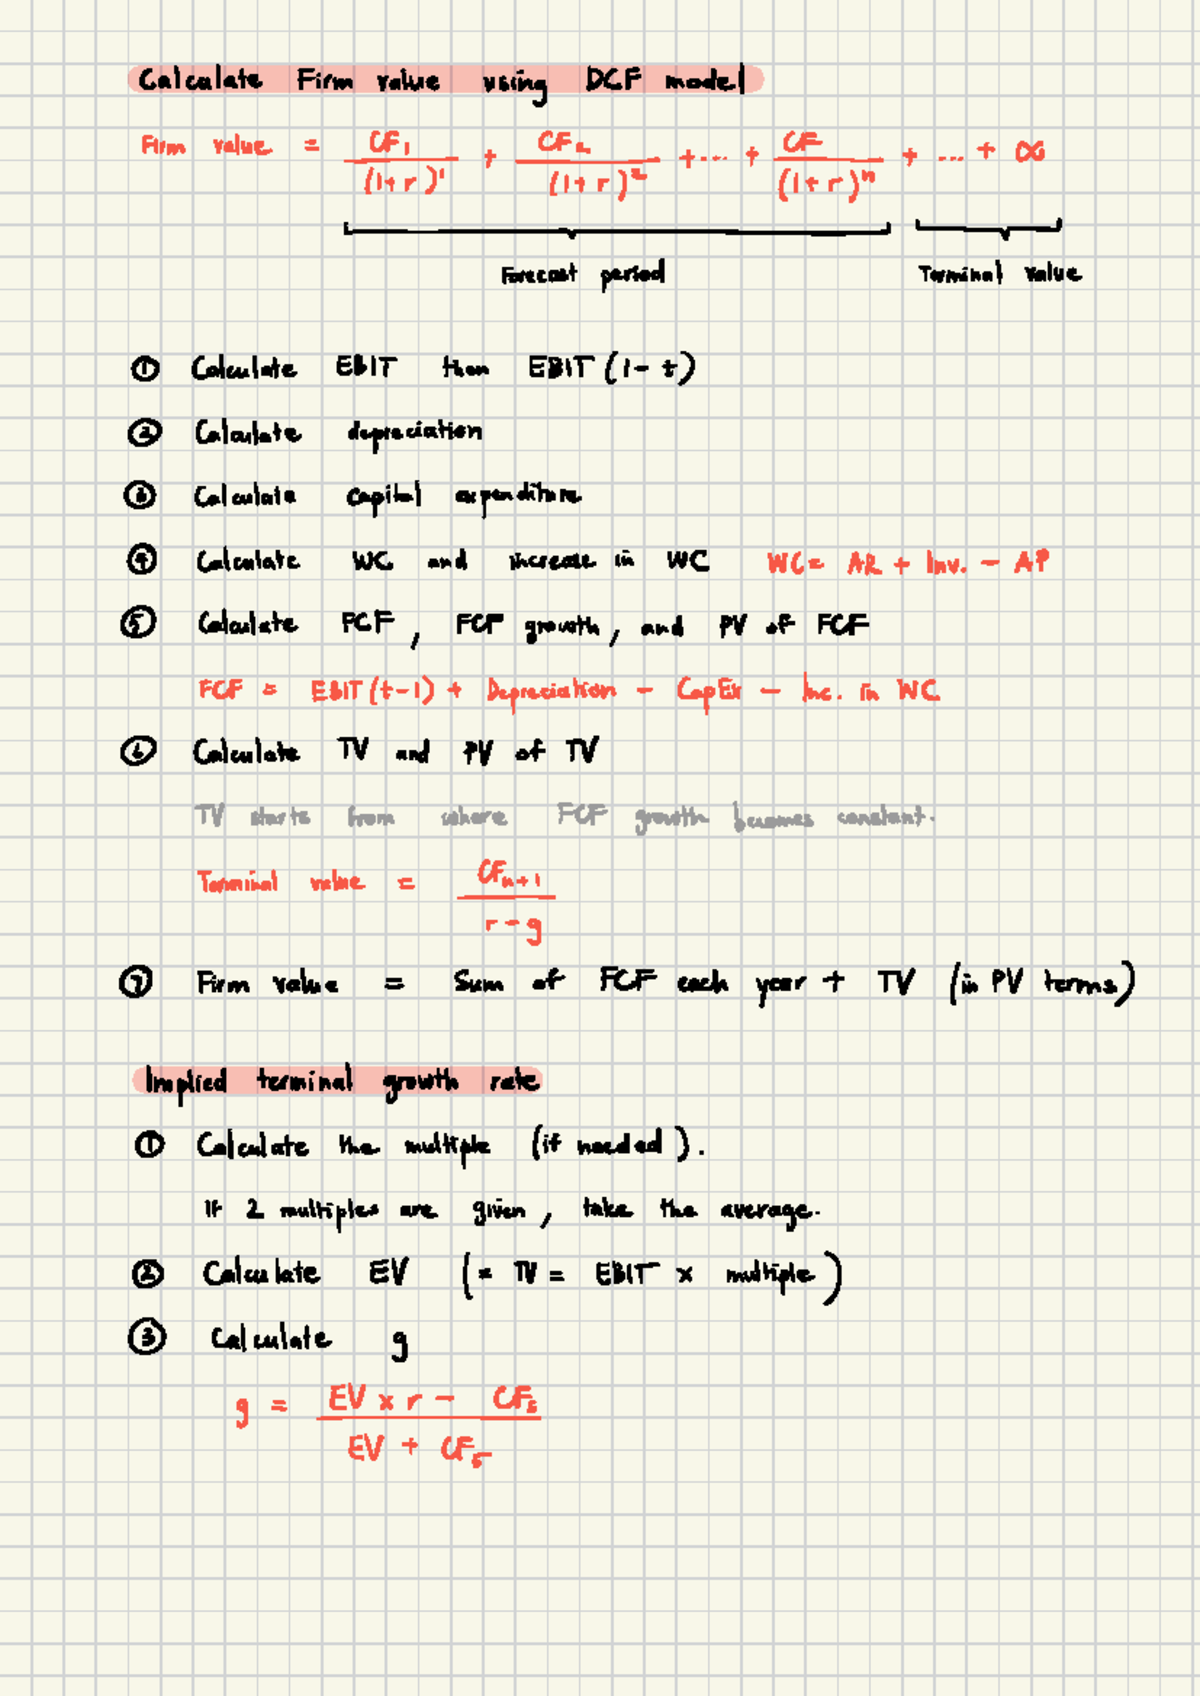 Calculate Firm value using DCF model
Firm value = CF₁/(1+r)¹ + CF₂/(1+r)² + ... + CF/(1+r)ⁿ + ... + ∞
Forecast period Terminal value
① Calculate EBIT then EBIT (1 - t)
② Calculate depreciation
③ Calculate capital expenditure
④ Calculate WC and increase in WC WC = AR + Inv. - AP
⑤ Calculate FCF, FCF growth, and PV of FCF
FCF = EBIT (t-1) + Depreciation - CapEx - Inc. in WC
⑥ Calculate TV and PV of TV
TV starts from where FCF growth becomes constant.
Terminal value = CFₙ₊₁/r - g
⑦ Firm value = Sum of FCF each year + TV (in PV terms)
Implied terminal growth rate
① Calculate the multiple (if needed).
If 2 multiples are given, take the average.
② Calculate EV (= TV = EBIT x multiple)
③ Calculate g
g = EV x r - CF₅/EV + CF₅